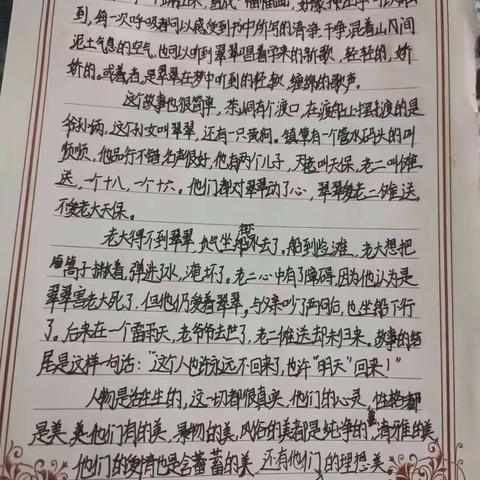 到,每一次呼吸都可以感受到书中所写的清净干净,混着山间
泥土气息的空气,也可以听到翠翠唱着学来的新歌,轻轻的,娇
娇的。或者是翠翠在梦中听到的轻软,缠绵的歌声。
这个故事也很简单,茶峒有个渡口,在渡船上摆渡的是
爷孙俩,这个孙女叫翠翠,还有一只黄狗。镇里有一个管水码头的叫
顺顺,他品行不错名声很好,他有两个儿子,天老叫天保,老二叫傩
送,一个十八,一个十六。他们都对翠翠动了心,翠翠爱老二傩送
不爱老大天保。
老大得不到翠翠,负气坐船水去了。船到险滩,老大想把
篙子撑着,弹进了水,淹坏了。老二心中有了障碍,因为他认为是
翠翠害老大死了,但他仍爱着翠翠。与父亲吵了两回,也坐船下行
了。后来在一个雷雨天,老爷爷去世了,老二傩送却未归来。故事的结
尾是这样一句话:“这个人也许永远不回来了,也许“明天”回来!”
人物是活生生的,这一切都很真实,他们的心灵,性格都
是美,美他们有的美,景物的美,风俗的美都是纯净的美,清雅的美,
他们的爱情也是含蓄蓄的美,还有他们的理想美。